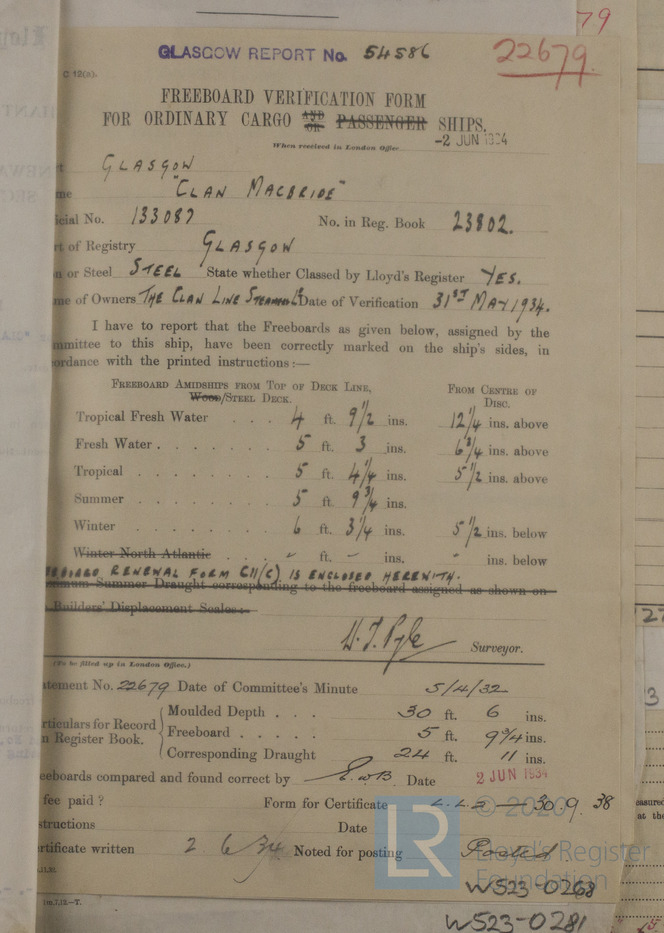 79
GLASGOW REPORT No. 54586
22679.
C 12(a).
FREEBOARD VERIFICATION FORM
FOR ORDINARY CARGO AND OR PASSENGER SHIPS.
When received in London Office
-2 JUN 1934
GLASGOW
"CLAN MACBRIDE"
cial No. 133087 No. in Reg. Book 23802.
rt of Registry GLASGOW
n or Steel STEEL State whether Classed by Lloyd's Register YES.
me of Owners THE CLAN LINE STEAMERS Ld Date of Verification 31ST MAY 1934.
I have to report that the Freeboards as given below, assigned by the
mmittee to this ship, have been correctly marked on the ship's sides, in
ordance with the printed instructions:—
FREEBOARD AMIDSHIPS FROM TOP OF DECK LINE, FROM CENTRE OF
Wood/STEEL DECK. DISC.
Tropical Fresh Water . . . 4 ft. 9 1/2 ins. 12 1/4 ins. above
Fresh Water . . . . . . . 5 ft. 3 ins. 6 3/4 ins. above
Tropical . . . . . . . . 5 ft. 4 1/4 ins. 5 1/2 ins. above
Summer . . . . . . . . 5 ft. 9 3/4 ins.
Winter . . . . . . . . 6 ft. 3 1/4 ins. 5 1/2 ins. below
Winter North Atlantic . . . . " ft. – ins. " ins. below
RENEWAL FORM C11(C) IS ENCLOSED HEREWITH.
mum Summer Draught corresponding to the freeboard assigned as shown on
Builders' Displacement Scale:-
W. J. Pyle Surveyor.
(To be filled up in London Office.)
atement No. 22679 Date of Committee's Minute 5/4/32
Moulded Depth . . . 30 ft. 6 ins.
rticulars for Record
n Register Book.
Freeboard . . . . . 5 ft. 9 3/4 ins.
Corresponding Draught 24 ft. 11 ins.
eeboards compared and found correct by E.W.B. Date 2 JUN 1934
fee paid? Form for Certificate L.L.2 — 30.9.38
structions Date
rtificate written 2.6.34 Noted for posting Posted
LR
© 2020
Lloyd's Register
Foundation
W523-0268
W523-0281